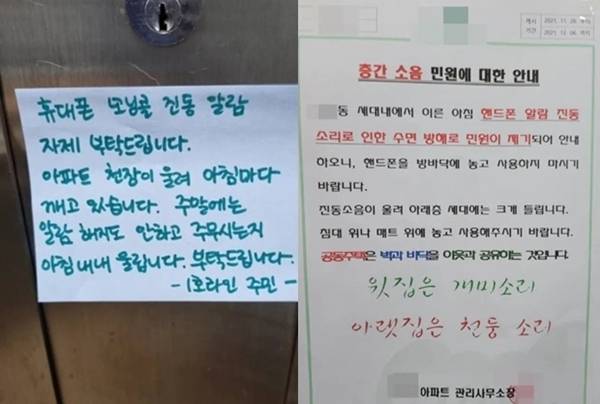 휴대폰 모닝콜 진동 알람
자제 부탁드립니다.
아파트 천장이 울려 아침마다
깨고 있습니다. 주말에는
알람 해지도 안하고 주무시는지
아침내내 울립니다. 부탁드립니다.
- 1호라인 주민 -
게시
2021. 11. 28
기간
2021. 12. 06.
층간 소음 민원에 대한 안내
동 세대내에서 이른 아침 핸드폰 알람 진동
소리로 인한 수면 방해로 민원이 제기되어 안내
하오니, 핸드폰을 방바닥에 놓고 사용하지 마시기
바랍니다.
진동소음이 울려 아래층 세대에는 크게 들립니다.
침대 위나 매트 위에 놓고 사용해주시기 바랍니다.
공동주택은 벽과 바닥을 이웃과 공유하는 것입니다.
윗집은 개미소리
아랫집은 천둥 소리
아파트 관리사무소장